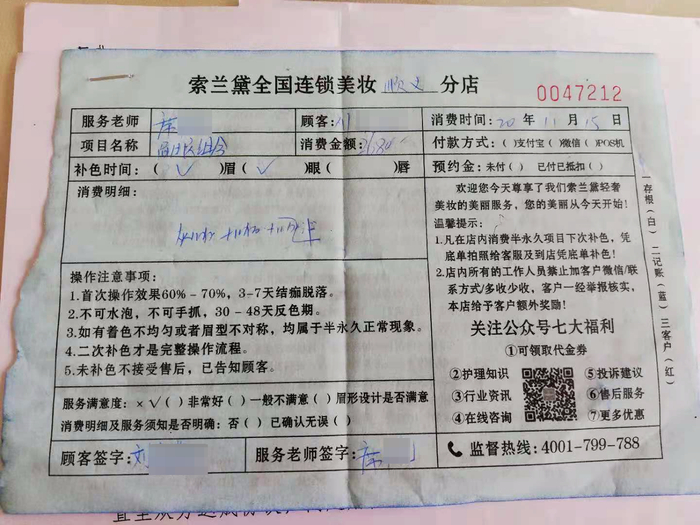 索兰黛全国连锁美妆 顺义 分店
0047212
服务老师
顾客:
消费时间: 20 年 11 月 15 日
项目名称
消费金额:
付款方式:( )支付宝( )微信( )POS机
补色时间: ( √ )眉 ( √ )眼 ( )唇
预约金: 未付( ) 已付已抵扣( )
消费明细:
欢迎您今天尊享了我们索兰黛轻奢
美妆的美丽服务,您的美丽从今天开始!
温馨提示:
1.凡在店内消费半永久项目下次补色,凭
底单拍照给客服及到店凭底单补色!
2.店内所有的工作人员禁止加客户微信/联
系方式/多收少收,客户一经举报核实,
本店给予客户额外奖励!
操作注意事项:
1.首次操作效果60%-70%,3-7天结痂脱落。
2.不可水泡,不可手抓,30-48天反色期。
3.如有着色不均匀或者眉型不对称,均属于半永久正常现象。
4.二次补色才是完整操作流程。
5.未补色不接受售后,已告知顾客。
关注公众号七大福利
①可领取代金券
②护理知识
⑤投诉建议
③行业资讯
⑥售后服务
④在线咨询
⑦更多惠
服务满意度: ×√( )非常好( )一般不满意( )眉形设计是否满意
消费明细及服务须知是否明确: 否( )已确认无误( )
顾客签字: 刘
服务老师签字:
监督热线:4001-799-788
一存根(白) 二记账(蓝) 三客户(红)